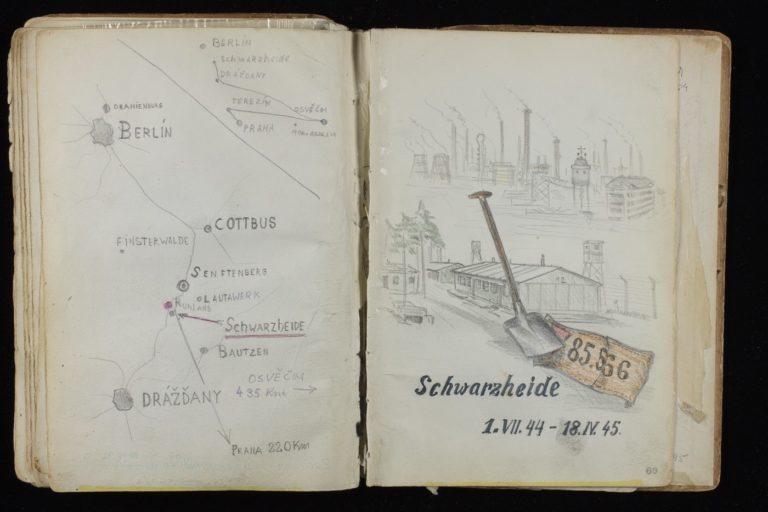 BERLÍN
Schwarzheide
DRÁŽĎANY
TEREZÍN
OSVĚČIM
PRAHA
ORANIENBURG
BERLÍN
COTTBUS
FINSTERWALDE
SENFTENBERG
LAUTAWERK
RUHLAND
SCHWARZHEIDE
BAUTZEN
OSVĚČIM
435 Km
DRÁŽĎANY
PRAHA 220 Km
85.
6
Schwarzheide
1. VII. 44 - 18. IV. 45.
69